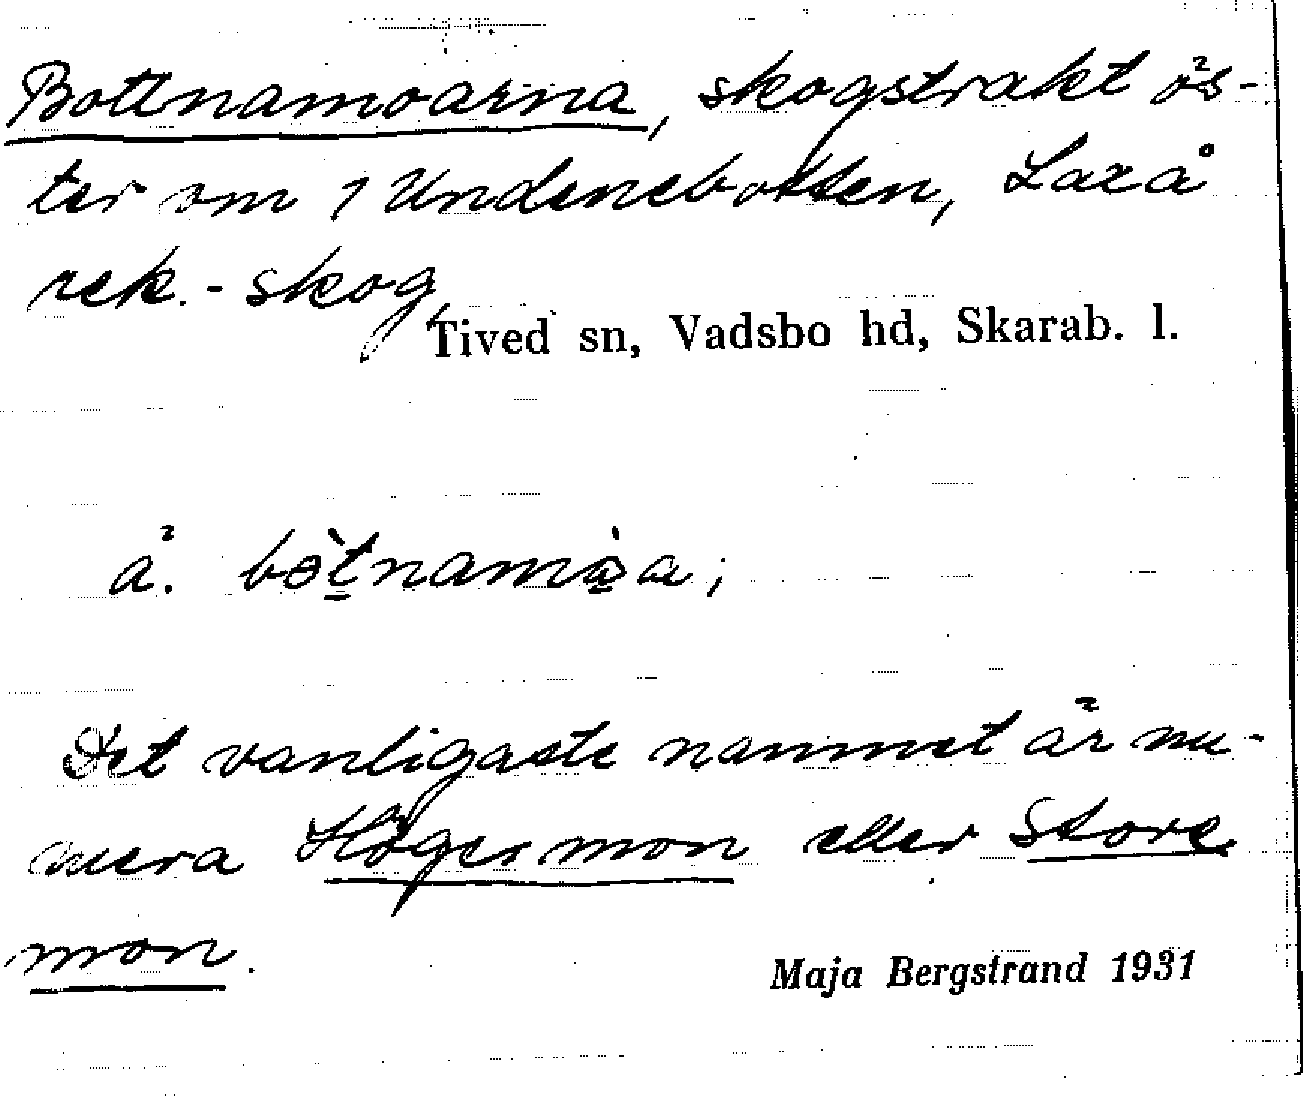 Bottnamoarna, skogstrakt ös-
ter om 1 Undenebotten, Laxå
rek.-skog
Tived sn, Vadsbo hd, Skarab. l.
å.
Det vanligaste namnet är nu-
mera Höger mon eller Store
mon.
Maja Bergstrand 1931